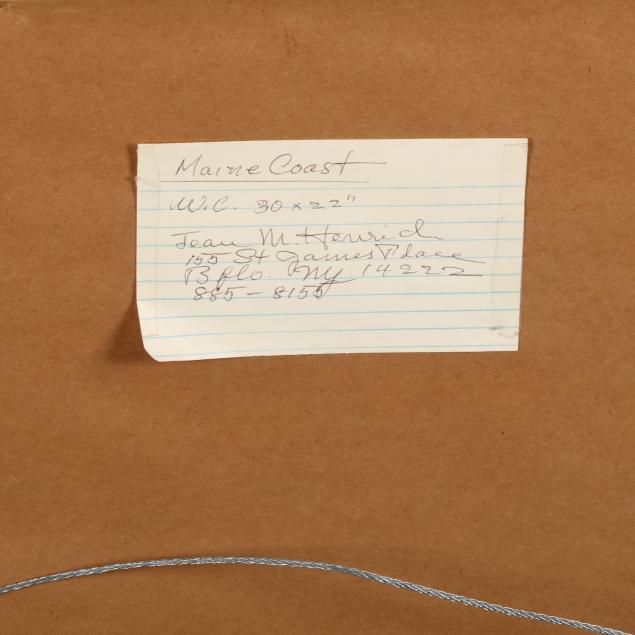 Maine Coast
W.C. 30 x 22"
Jean M. Henrich
155 St James Place
Bflo. NY 14222
885-8155